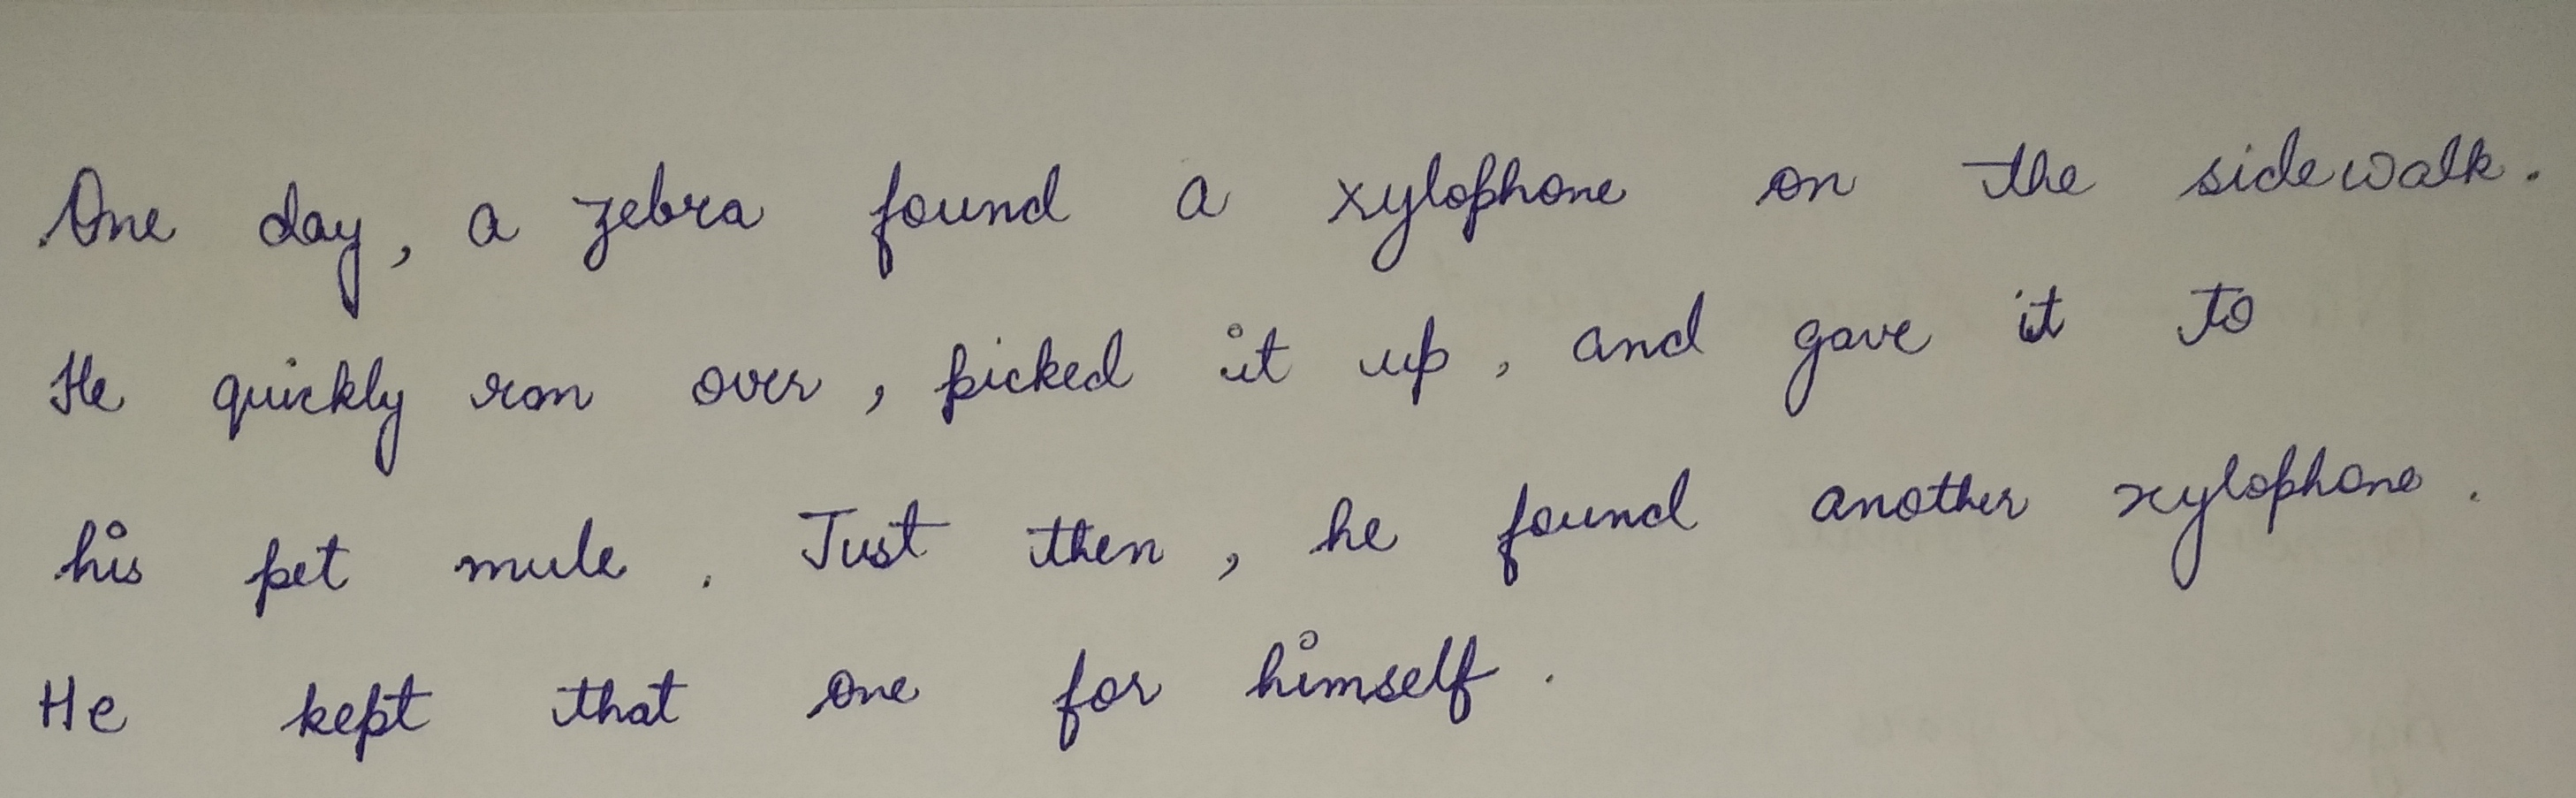 One day, a zebra found a xylophone on the sidewalk.
He quickly ran over, picked it up, and gave it to
his pet mule. Just then, he found another xylophone.
He kept that one for himself.